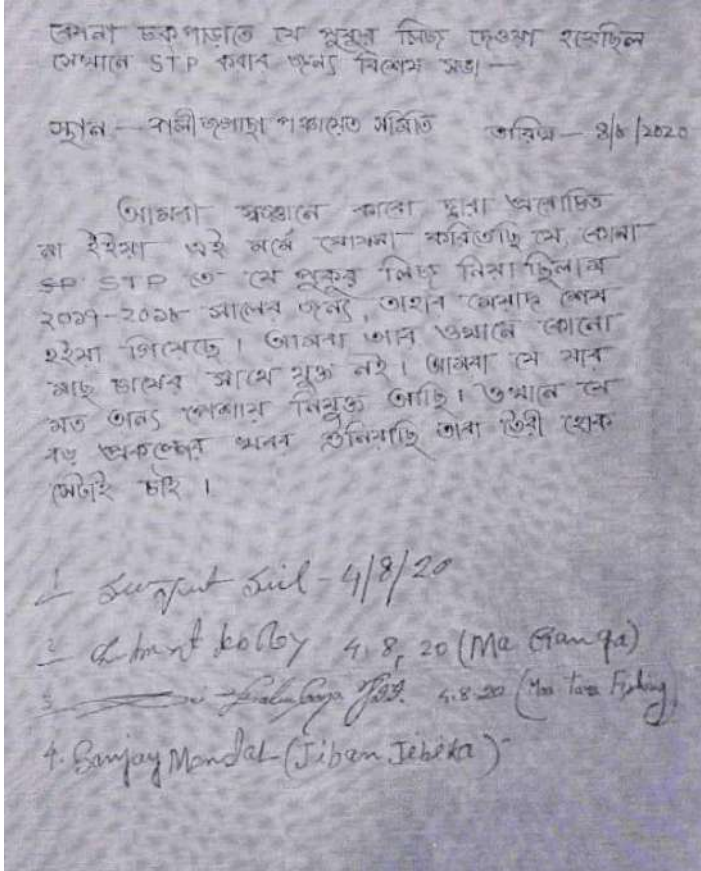 কোনা চকপাড়াতে যে পুকুর লিজ দেওয়া হয়েছিল
সেখানে STP করার জন্য বিশেষ সভা —
স্থান — বালীজগাছা পঞ্চায়েত সমিতি তারিখ — ৪/৮/2020
আমরা স্বজ্ঞানে কারো দ্বারা প্ররোচিত
না হইয়া এই মর্মে ঘোষনা করিতেছি যে, কোনা
STP তে যে পুকুর লিজ নিয়া ছিলাম
২০১৭-২০১৮ সালের জন্য, তাহার মেয়াদ শেষ
হইয়া গিয়েছে। আমরা আর ওখানে কোনো
মাছ চাষের সাথে যুক্ত নই। আমরা যে যার
মত অন্য পেশায় নিযুক্ত আছি। ওখানে যে
বড় প্রকল্পের খবর শুনিয়াছি তারা তৈরী হোক
সেটাই চাই।
1 Sil - 4/8/20
2 Kolley 4.8.20 (Ma Ganga)
3 4.8.20 (Maa Tara Fishing)
4. Sanjay Mondal (Jiban Jebika)